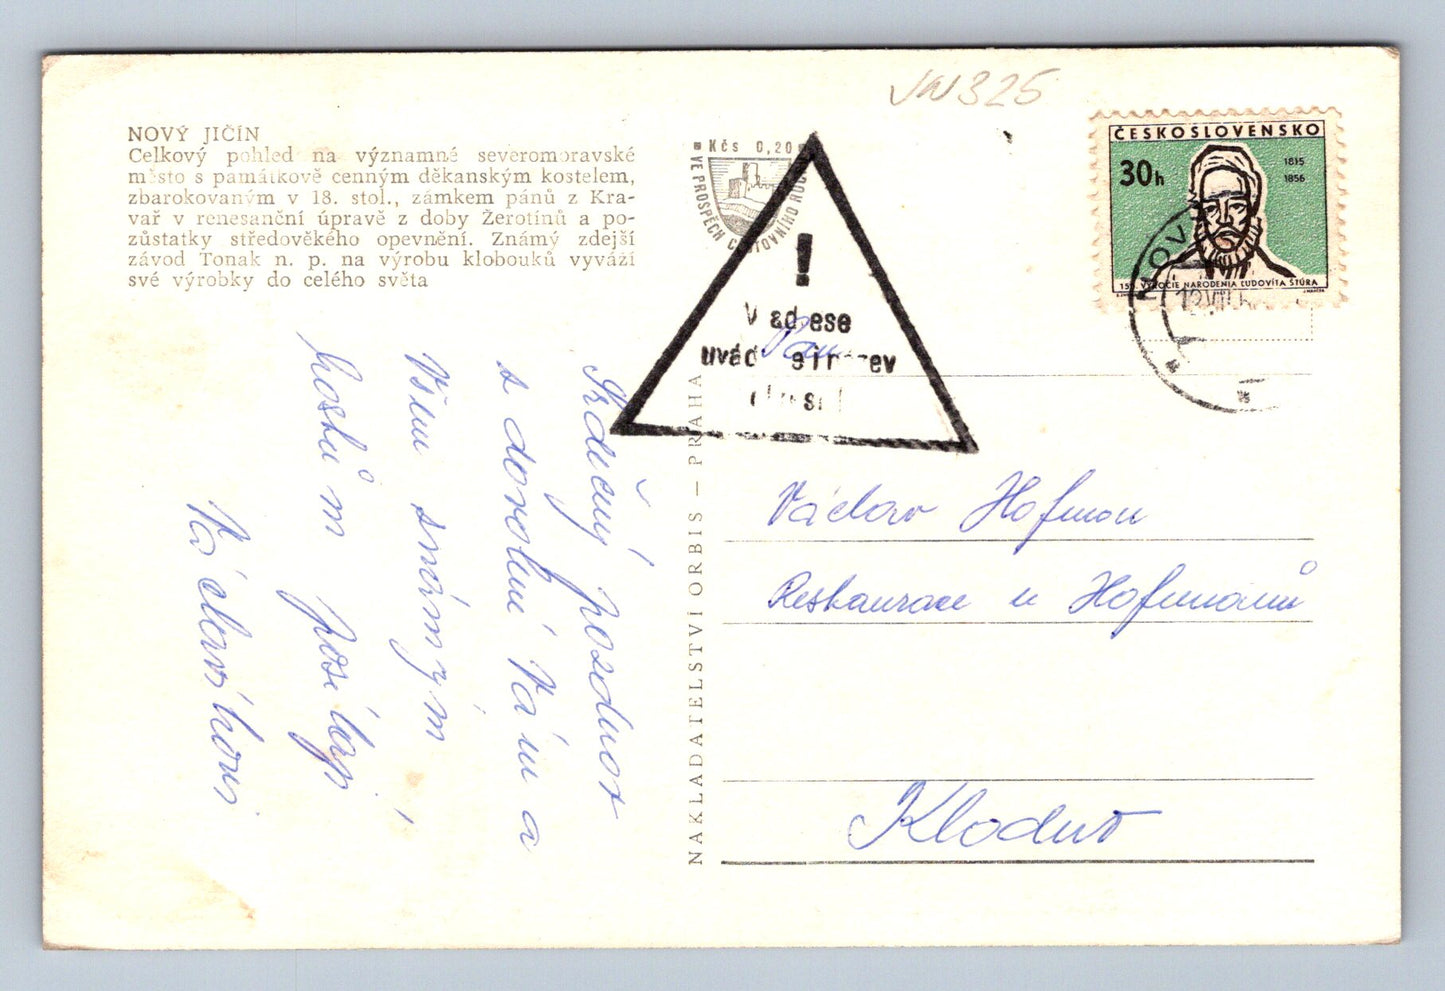 VN325
NOVÝ JIČÍN
Celkový pohled na významné severomoravské
město s památkově cenným děkanským kostelem,
zbarokovaným v 18. stol., zámkem pánů z Kra-
vař v renesanční úpravě z doby Žerotínů a po-
zůstatky středověkého opevnění. Známý zdejší
závod Tonak n. p. na výrobu klobouků vyváží
své výrobky do celého světa
Kčs 0,20
VE PROSPĚCH CESTOVNÍHO RUCHU
!
V adrese
uvád
ČESKOSLOVENSKO
30h
1815
1856
150. VÝROČIE NARODENIA ĽUDOVÍTA ŠTÚRA
NOVÝ
12.VIII.
Srdečný pozdrav
z dovolené Vám a
Všem známým
hostům posílají
NAKLADATELSTVÍ ORBIS – PRAHA
Pan
Václav Hofman
Restaurace u Hofmanů
Kladno